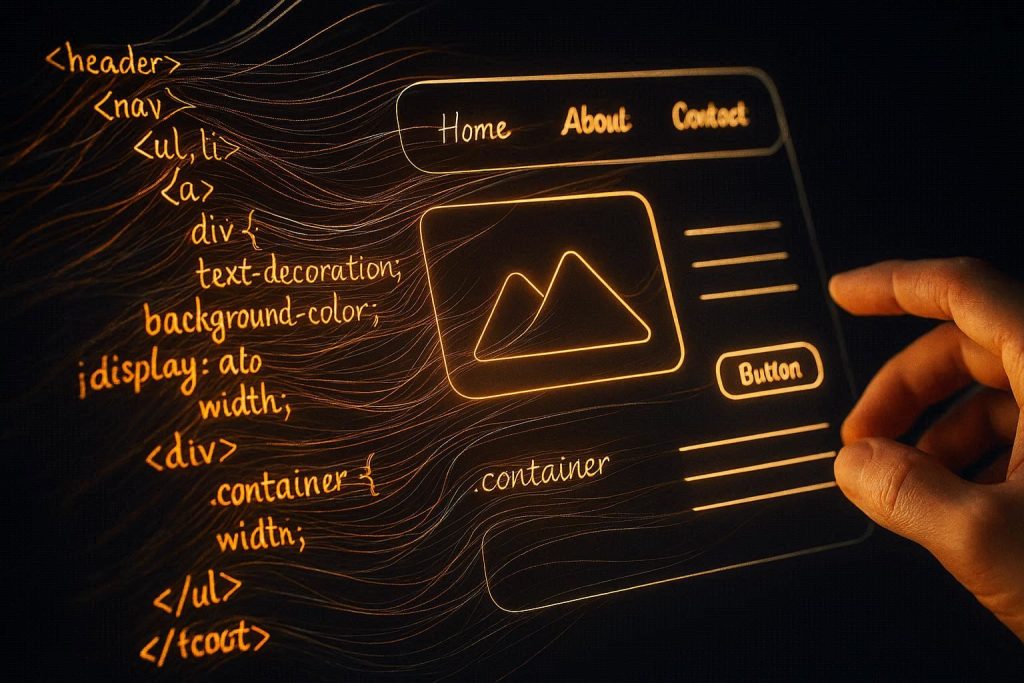 <header>
<nav>
<ul, li>
<a>
div {
text-decoration;
background-color;
jdisplay: ato
width;
<div>
.container {
widtn;
</ul>
</fcoot>
Home About Contoct
Button
.container